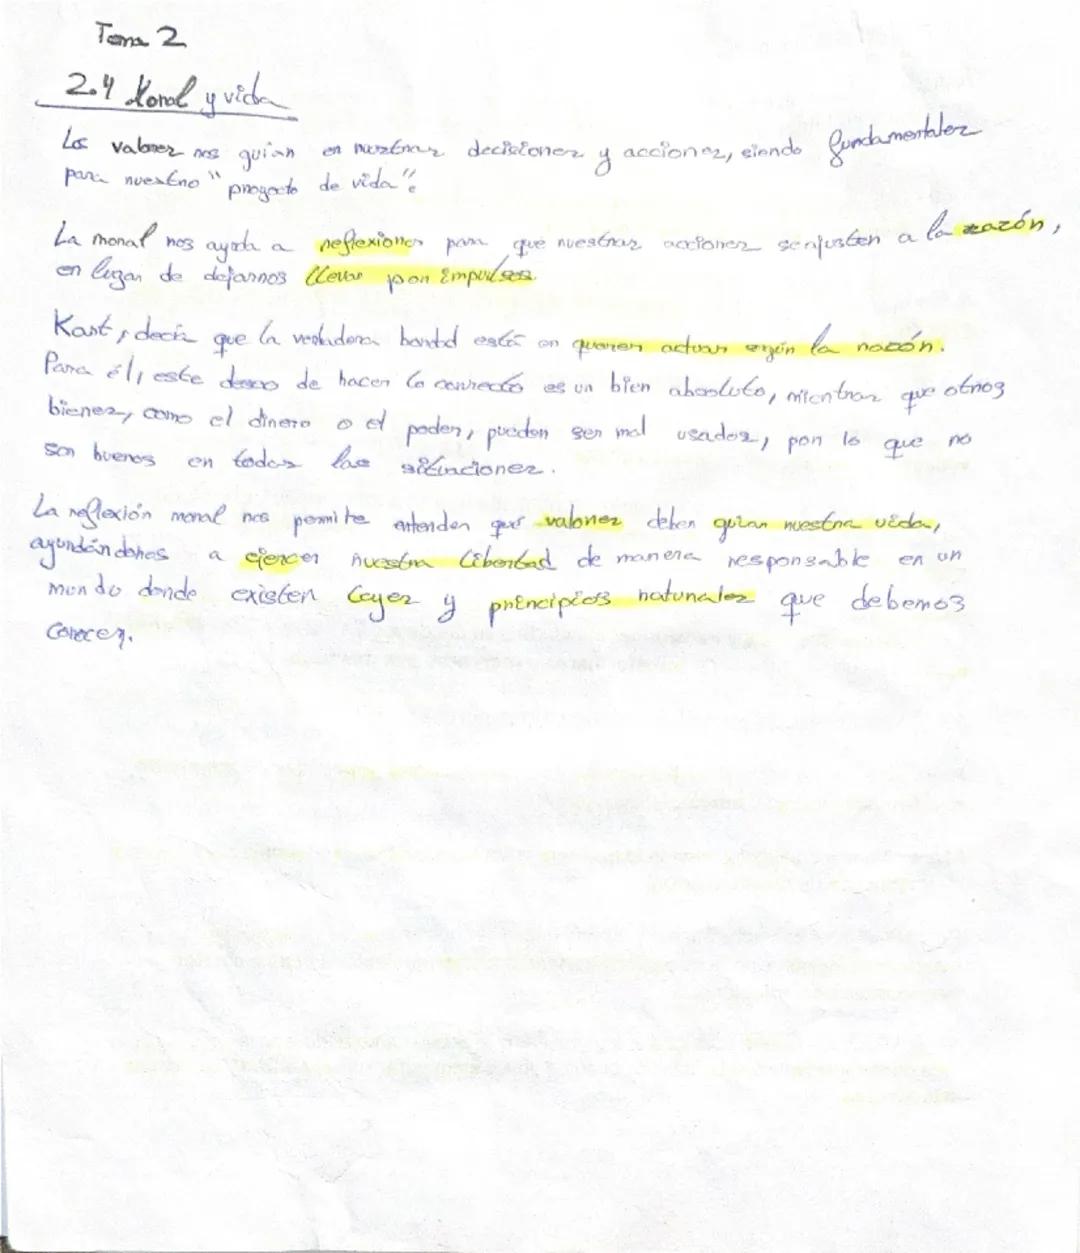 Tema 2
2.4 Moral y vida
Los valores nos guian en nuestras decisiones y acciones, siendo fundamentales
para nuestro "proyecto de vida".
La moral nos ayuda a reflexionar para que nuestras acciones se ajusten a la razón,
en lugar de dejarnos llevar por impulsos
Kant, decía que la verdadera bondad está en querer actuar según la razón.
Para él, este deseo de hacer lo correcto es un bien absoluto, mientras que otros
bienes, como el dinero o el poder, pueden ser mal usados, por lo que no
son buenos en todas las situaciones.
La reflexión moral nos permite entender qué valores deben guiar nuestra vida,
ayundándonos a ejercer nuestra libertad de manera responsable en un
mundo donde existen leyes y principios naturales que debemos
conocer.